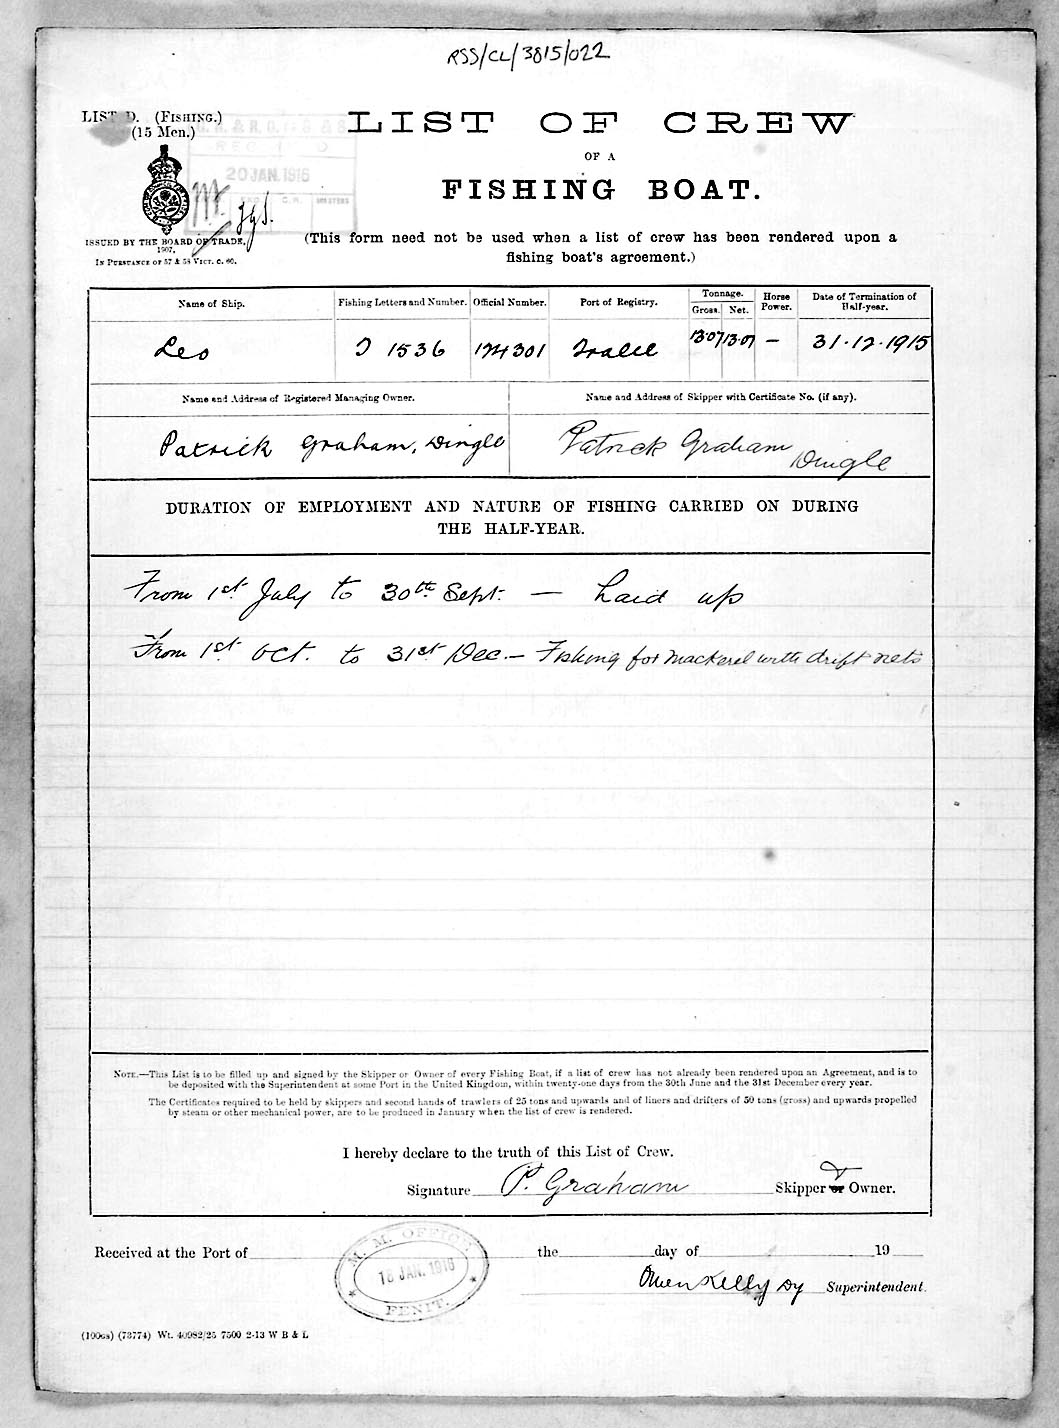 RSS/CL/3815/022
LIST D. (FISHING.)
(15 Men.)
LIST OF CREW
OF A
FISHING BOAT.
20 JAN. 1916
ISSUED BY THE BOARD OF TRADE,
1907,
IN PURSUANCE OF 57 & 58 VICT. C. 60.
(This form need not be used when a list of crew has been rendered upon a
fishing boat's agreement.)
Name of Ship. Fishing Letters and Number. Official Number. Port of Registry. Tonnage. Gross. Net. Horse Power. Date of Termination of Half-year.
Leo T 1536 124301 Tralee 13.07 13.07 — 31.12.1915
Name and Address of Registered Managing Owner. Name and Address of Skipper with Certificate No. (if any).
Patrick Graham, Dingle Patrick Graham Dingle
DURATION OF EMPLOYMENT AND NATURE OF FISHING CARRIED ON DURING
THE HALF-YEAR.
From 1st July to 30th Sept. — Laid up
From 1st Oct. to 31st Dec. — Fishing for mackerel with drift nets
NOTE.—This List is to be filled up and signed by the Skipper or Owner of every Fishing Boat, if a list of crew has not already been rendered upon an Agreement, and is to
be deposited with the Superintendent at some Port in the United Kingdom, within twenty-one days from the 30th June and the 31st December every year.
The Certificates required to be held by skippers and second hands of trawlers of 25 tons and upwards and of liners and drifters of 50 tons (gross) and upwards propelled
by steam or other mechanical power, are to be produced in January when the list of crew is rendered.
I hereby declare to the truth of this List of Crew.
Signature P. Graham Skipper or & Owner.
Received at the Port of the day of 19
M. M. OFFICE
18 JAN. 1916
FENIT.
Owen Kelly Dy Superintendent.
(190GS) (73774) Wt. 40982/25 7500 2-13 W B & L